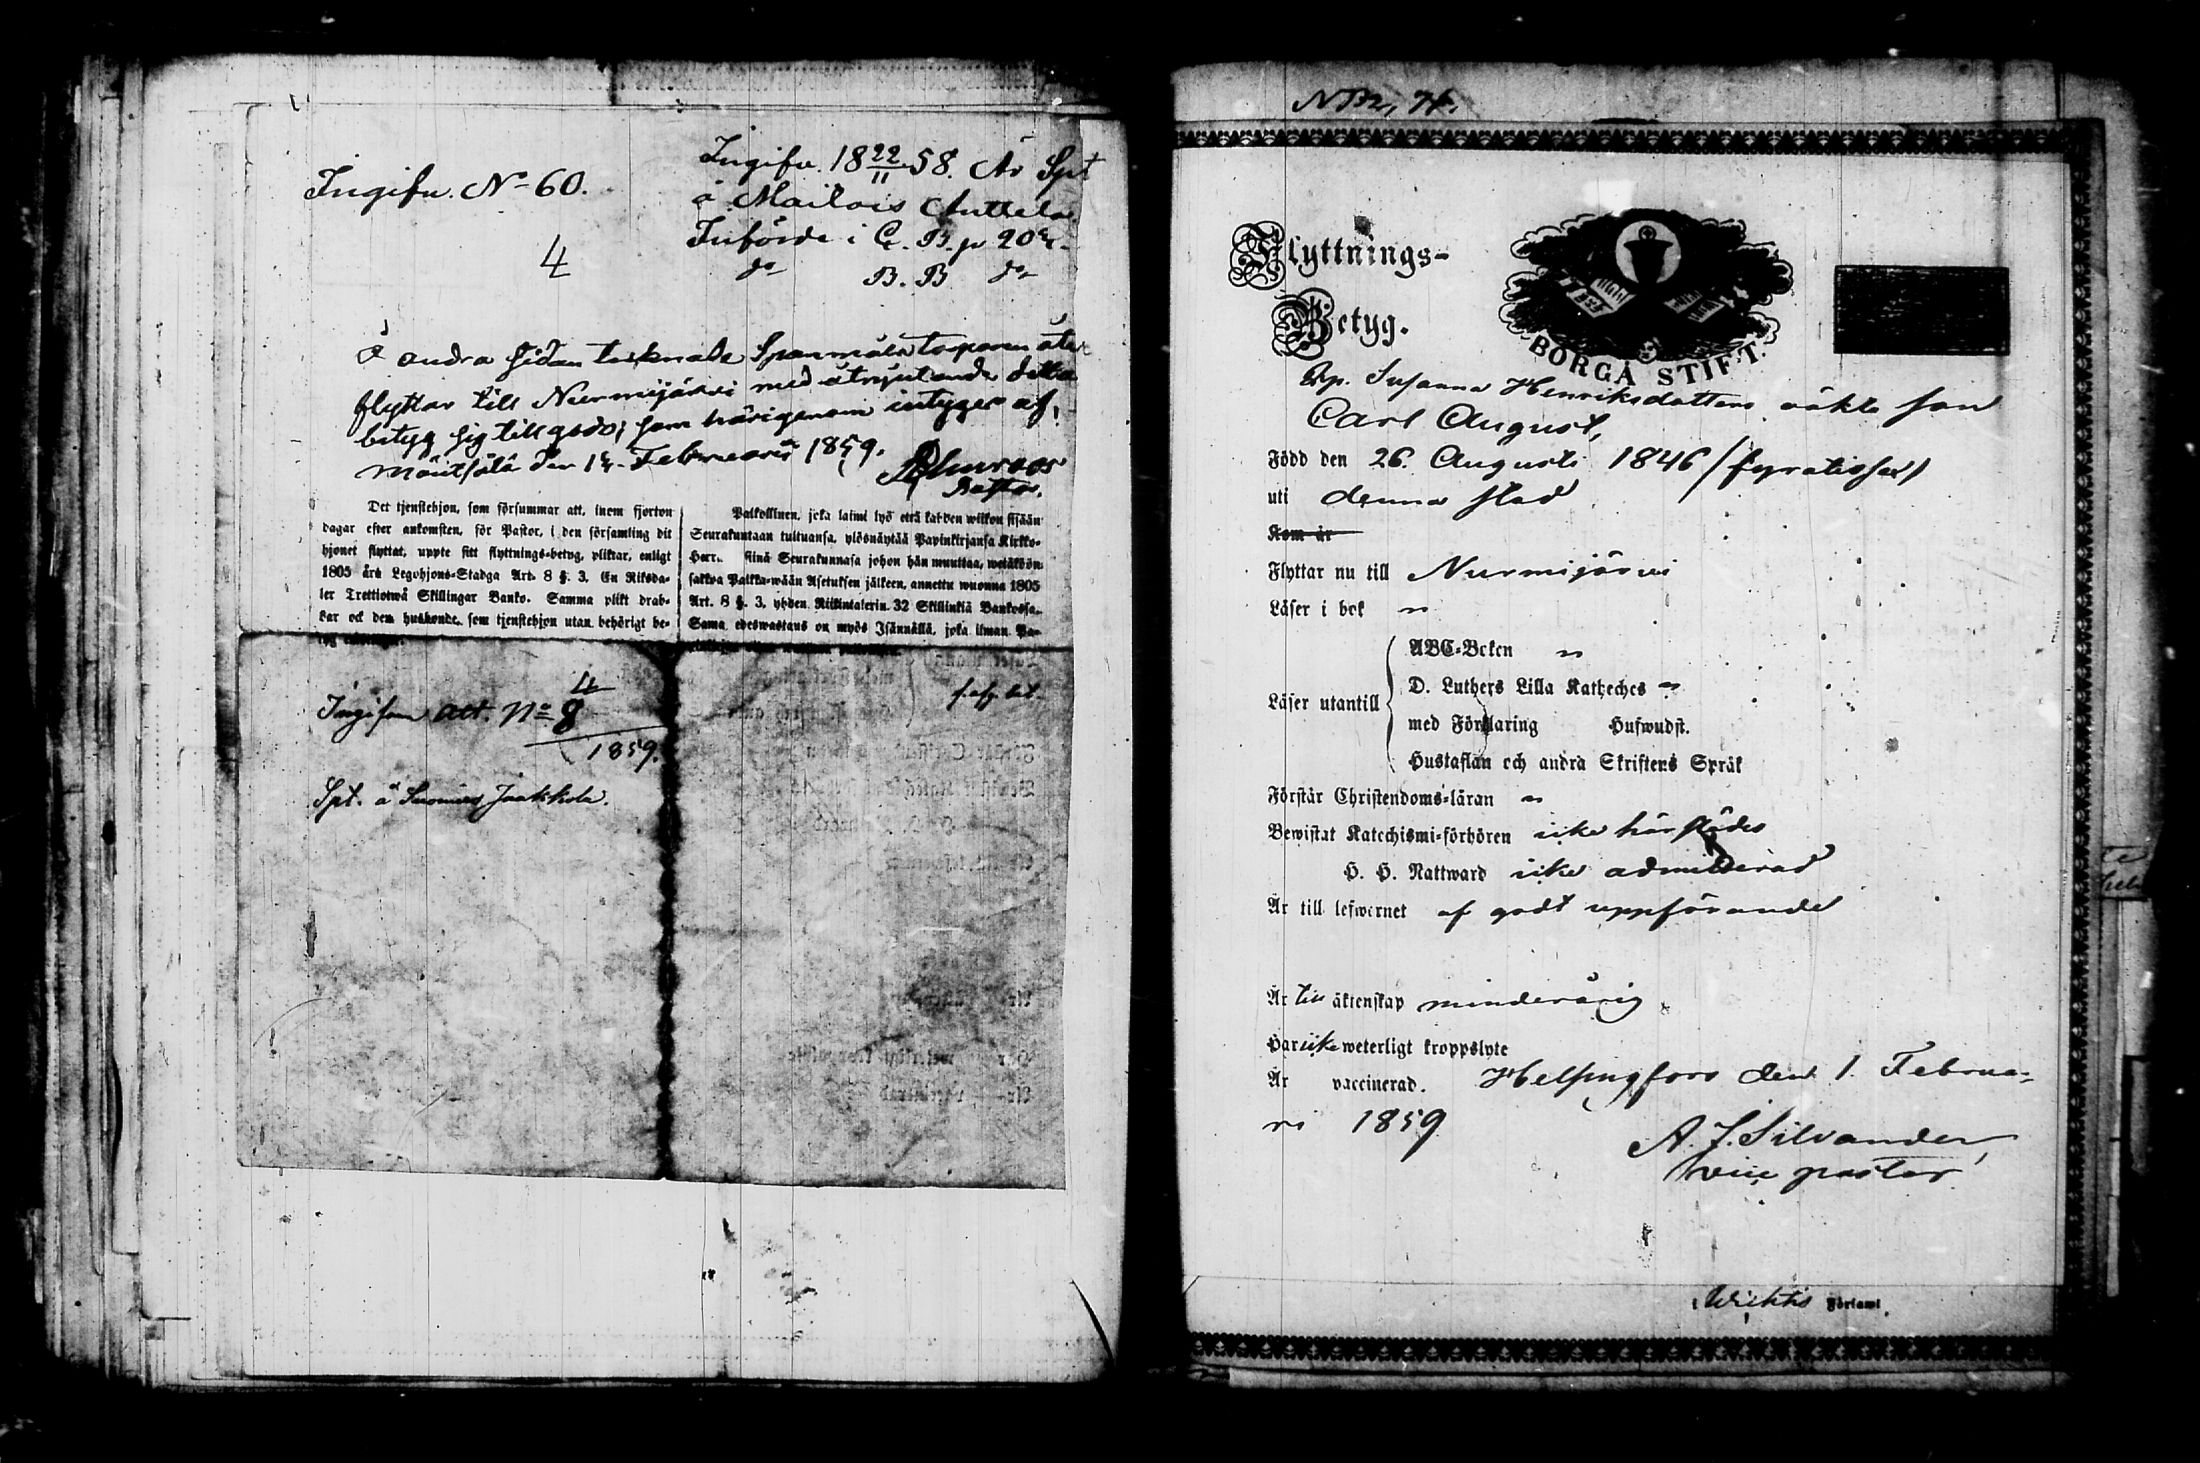 Ingifv. No 60.
4
Ingifv. 18 22/11 58. Är Spt
å Mailais Anttela.
Införde i C. B. p 20
do B. B do
å andra sidan tecknade Spanmåls torparen åter
flyttar till Nurmijärvi med åtnjutande detta
betyg sig till godo; som härigenom intygas af.
Mäntsälä den 1 Februarii 1859.
Pastor.
Det tjenstehjon, som försummar att, inom fjorton
dagar efter ankomsten, för Pastor, i den församling dit
hjonet flyttat, uppte sitt flyttnings-betyg, pliktar, enligt
1805 års Legohjons-Stadga Art. 8 §. 3. En Riksda-
ler Trettiotwå Skillingar Banko. Samma plikt drab-
bar ock den husbonde, som tjenstehjon utan behörigt be-
Palkollinen, joka laimi lyö että kahden wiikon sisään
Seurakuntaan tultuansa, ylösnäytää Papinkirjansa Kirkko-
Herr. siinä Seurakunnasa johon hän muuttaa, wetäköön
sakkoa Palkka-wään Asetuksen jälkeen, annettu wuonna 1805
Art. 8 §. 3, yhden Riikintalerin 32 Skillinkiä Bankossa.
Sama edeswastaus on myös Isännällä, joka ilman Pa-
Ingifven att. No 8
4
1859.
Spt. å Suomies Jaakkola.
Flyttnings-
Betyg.
BORGÅ STIFT.
Qp. Susanna Henriksdotters oäkta son
Carl August,
Född den 26. Augusti 1846 /fyratiosex/
uti denna stad
Kom år
Flyttar nu till Nurmijärvi
Läser i bok "
Läser utantill
ABC-Boken "
D. Luthers Lilla Katheches "
med Förklaring Hufwudst.
Hustaflan och andra Skriftens Språk
Förstår Christendoms-läran "
Bewistat Katechismi-förhören icke härstädes
H. H. Nattward icke admitterad
Är till lefwernet af godt uppförande
Är till äktenskap minderårig
Har icke weterligt kroppslyte
Är vaccinerad. Helsingfors den 1. Februa-
ri 1859
A. J. Silvander,
vice pastor
i Wichtis Församl.